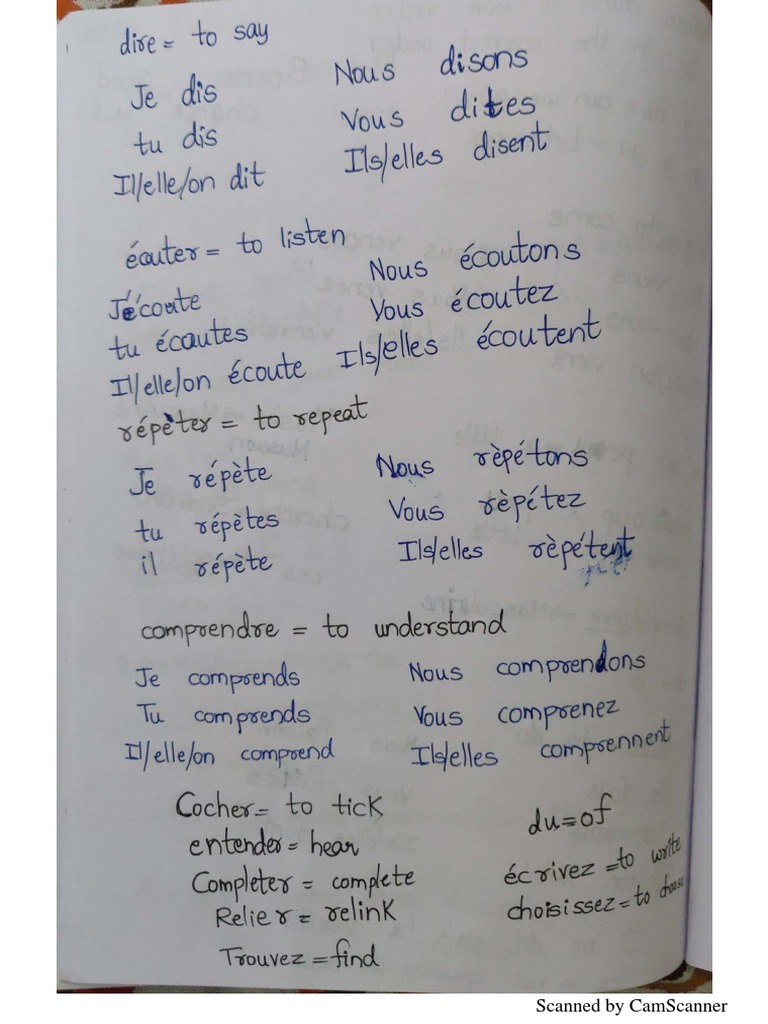 dire = to say
Je dis Nous disons
tu dis Vous dites
Il/elle/on dit Ils/elles disent
écouter = to listen
J'écoute Nous écoutons
tu écoutes Vous écoutez
Il/elle/on écoute Ils/elles écoutent
répèter = to repeat
Je répète Nous rèpétons
tu répètes Vous rèpétez
il répète Ils/elles rèpétent
comprendre = to understand
Je comprends Nous comprendons
Tu comprends Vous comprenez
Il/elle/on comprend Ils/elles comprennent
Cocher = to tick
du = of
entender = hear
écrivez = to write
Completer = complete
choisissez = to choose
Relier = relink
Trouvez = find
Scanned by CamScanner